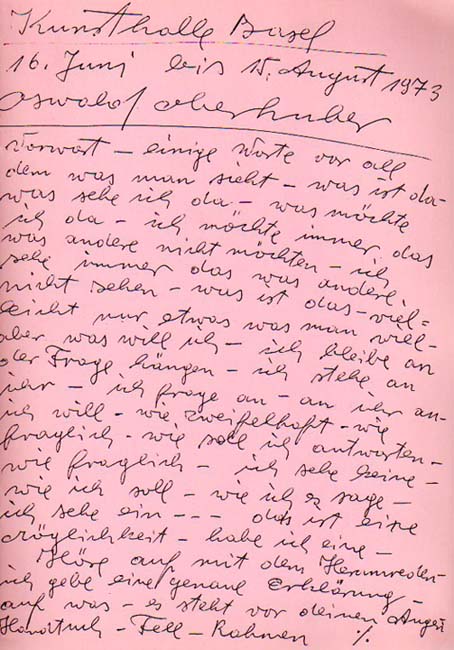 Kunsthalle Basel
16. Juni bis 15. August 1973
Oswald Oberhuber
Vorwort – einige Worte vor all
dem was man sieht – was ist da –
was sehe ich da – was möchte
ich da – ich möchte immer das
was andere nicht möchten – ich
sehe immer das was andere
nicht sehen – was ist das – viel=
leicht nur etwas was man will –
aber was will ich – ich bleibe an
der Frage hängen – ich stehe an
ihr – ich frage an – an ihr an –
ich will – wie zweifelhaft – wie
fraglich – wie soll ich antworten –
wie fraglich – ich sehe keine –
wie ich soll – wie ich es sage –
ich sehe ein – – – das ist eine
Möglichkeit – habe ich eine –
Höre auf mit dem Herumreden –
ich gebe eine genaue Erklärung –
auf was – es steht vor deinen Augen
Handtuch – Fell – Rahmen %.